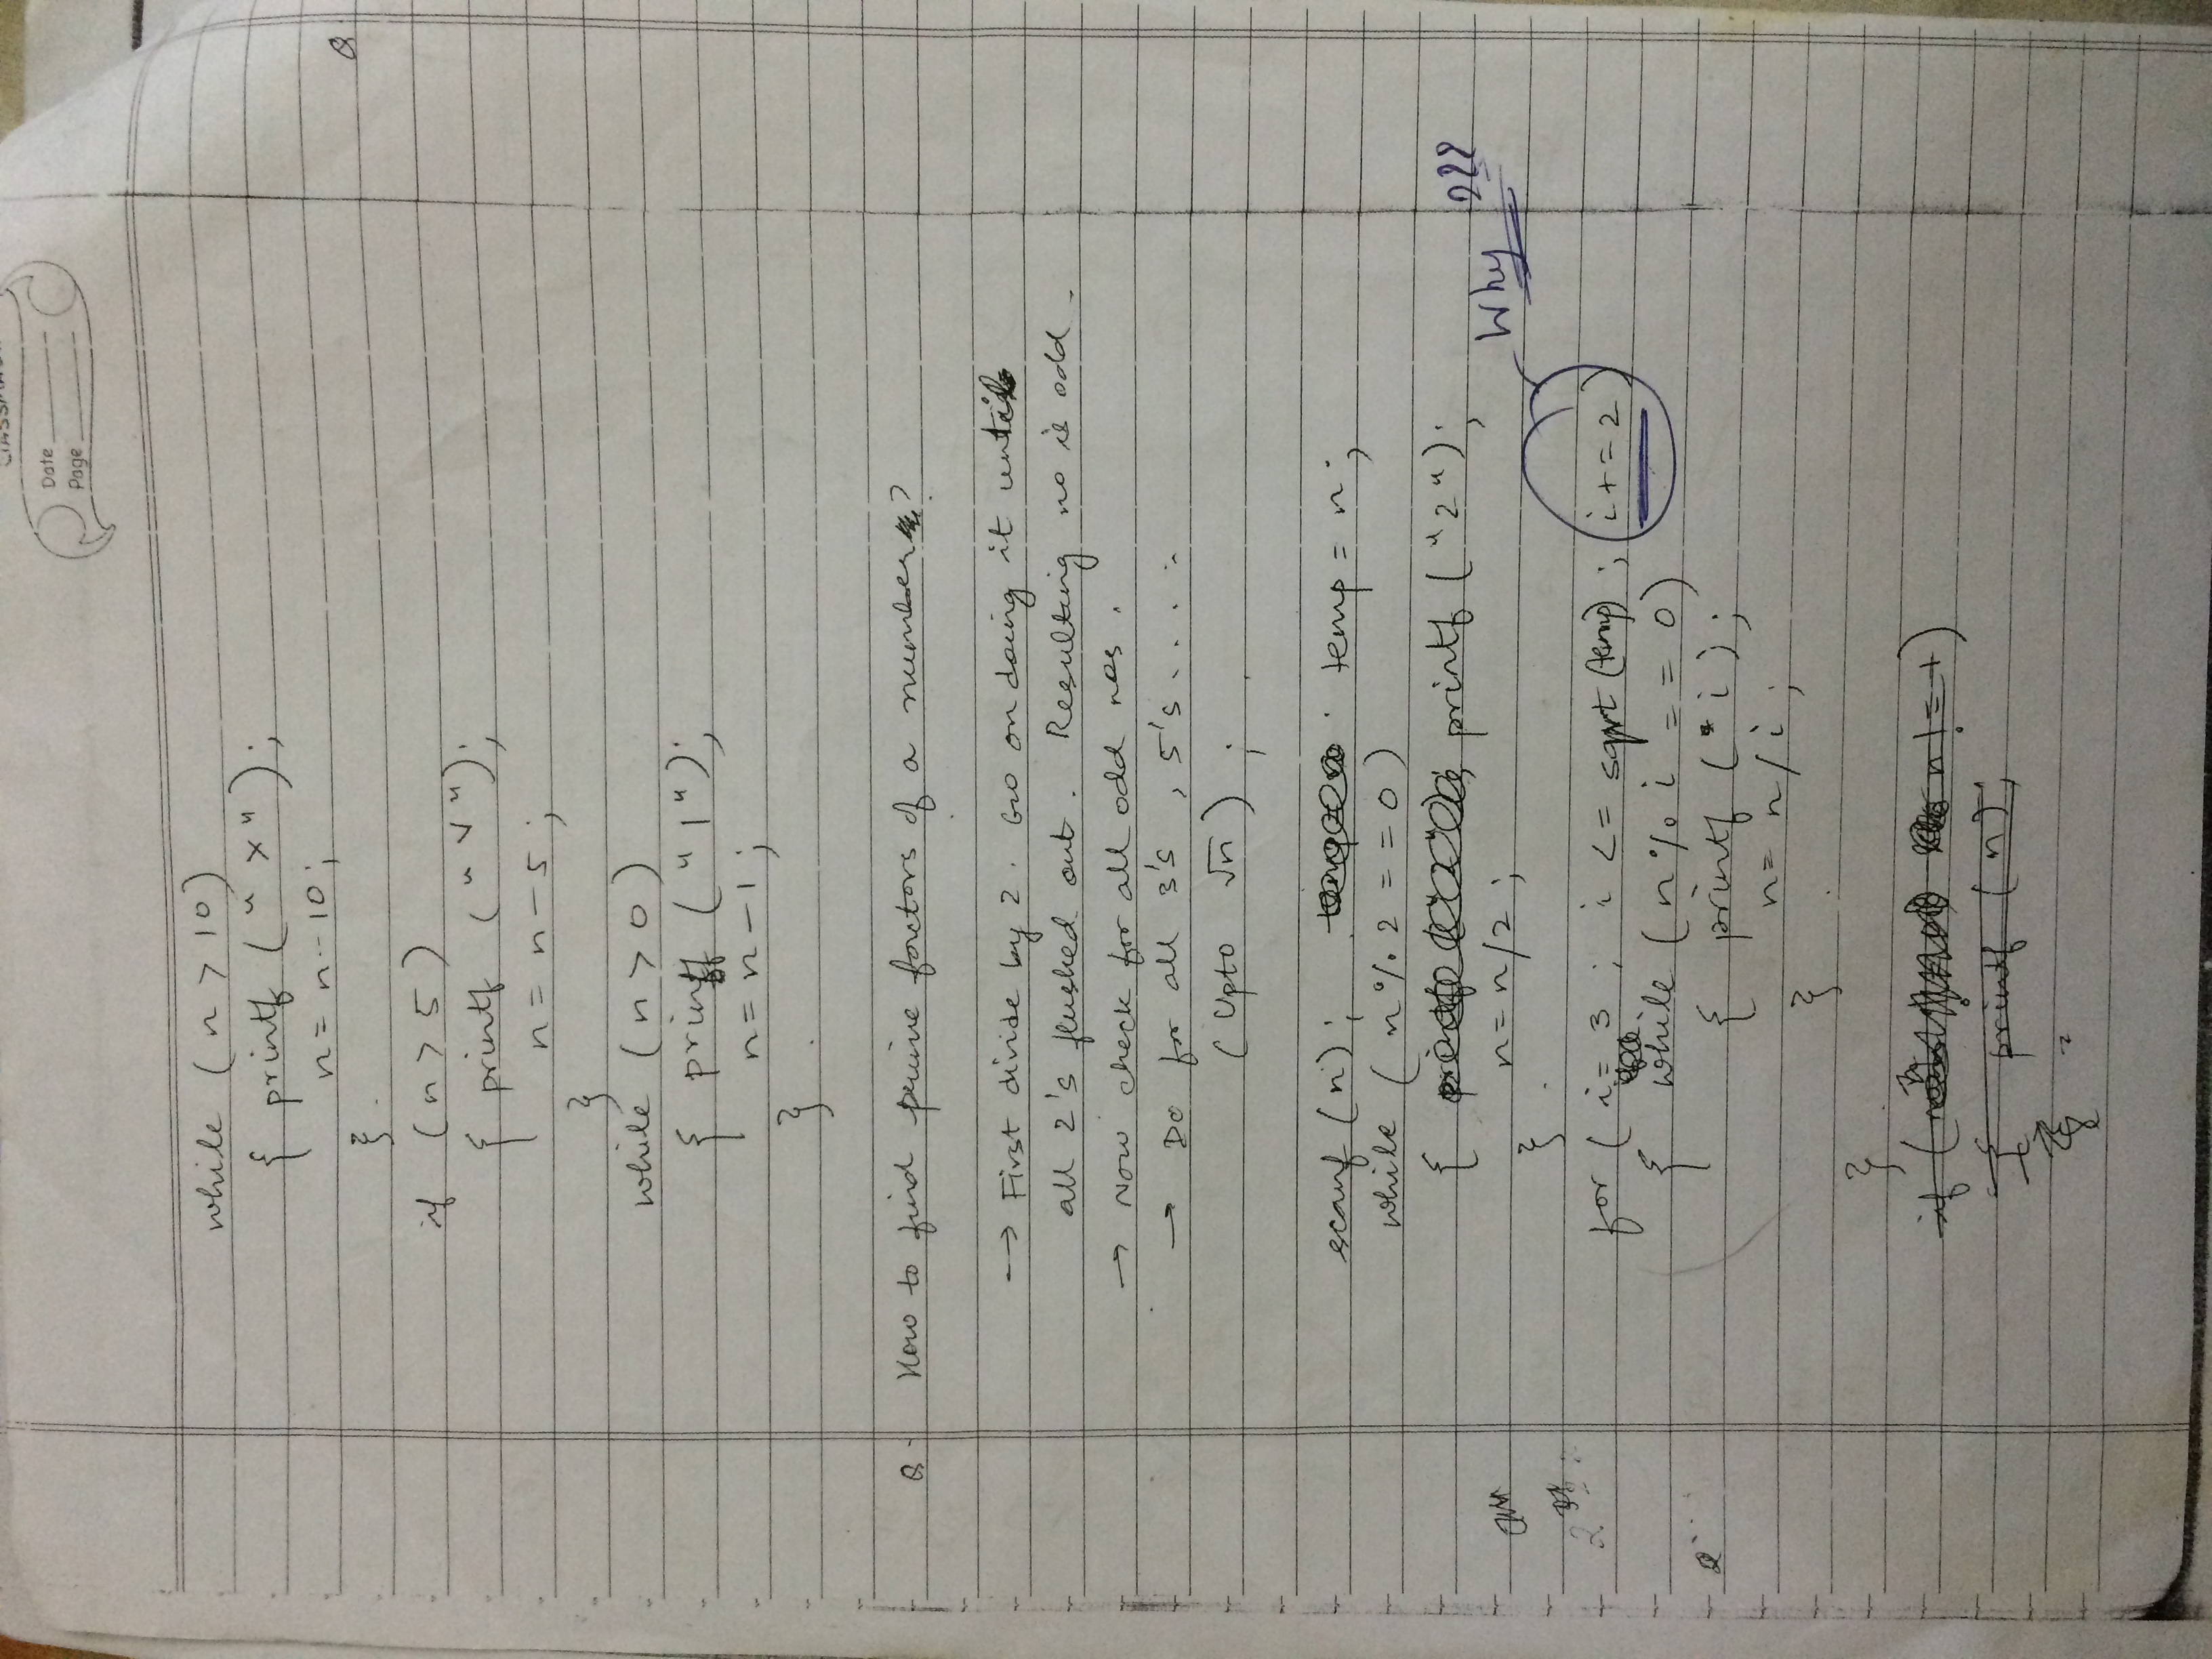 Date
Page
while (n > 10)
{ printf ("X");
n = n-10;
}
Q
if (n > 5)
{ printf ("V");
n = n-5;
}
while (n > 0)
{ printf ("1");
n = n-1;
}
Q- How to find prime factors of a number ?
→ First divide by 2. Go on doing it until
all 2's flushed out. Resulting no is odd.
→ Now check for all odd nos.
→ Do for all 3's , 5's . . . .
(Upto √n) ;
scanf (n); temp = n;
while (n % 2 == 0)
{ printf ("2");
n = n/2 ;
}
Why ???
for ( i = 3 ; i <= sqrt (temp) ; i += 2 )
{ while (n % i == 0)
{ printf ( i );
n = n / i ;
}
}
if ( n != 1)
{ printf (n);